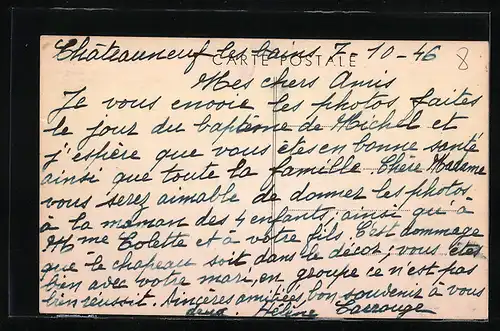 Châteauneuf les bains 7-10-46
8
CARTE POSTALE
Mes chers Amis
Je vous envoie les photos faites
le jour du baptême de Michel et
j'espère que vous êtes en bonne santé
ainsi que toute la famille. Chère Madame
vous serez aimable de donner les photos
à la maman des 4 enfants, ainsi qu'à
Mme Colette et à votre fils. C'est dommage
que le chapeau soit dans le décor; vous êtes
bien avec votre mari, en groupe ce n'est pas
bien réussit. Sincères amitiés, bon souvenir à vous
deux. Hélène